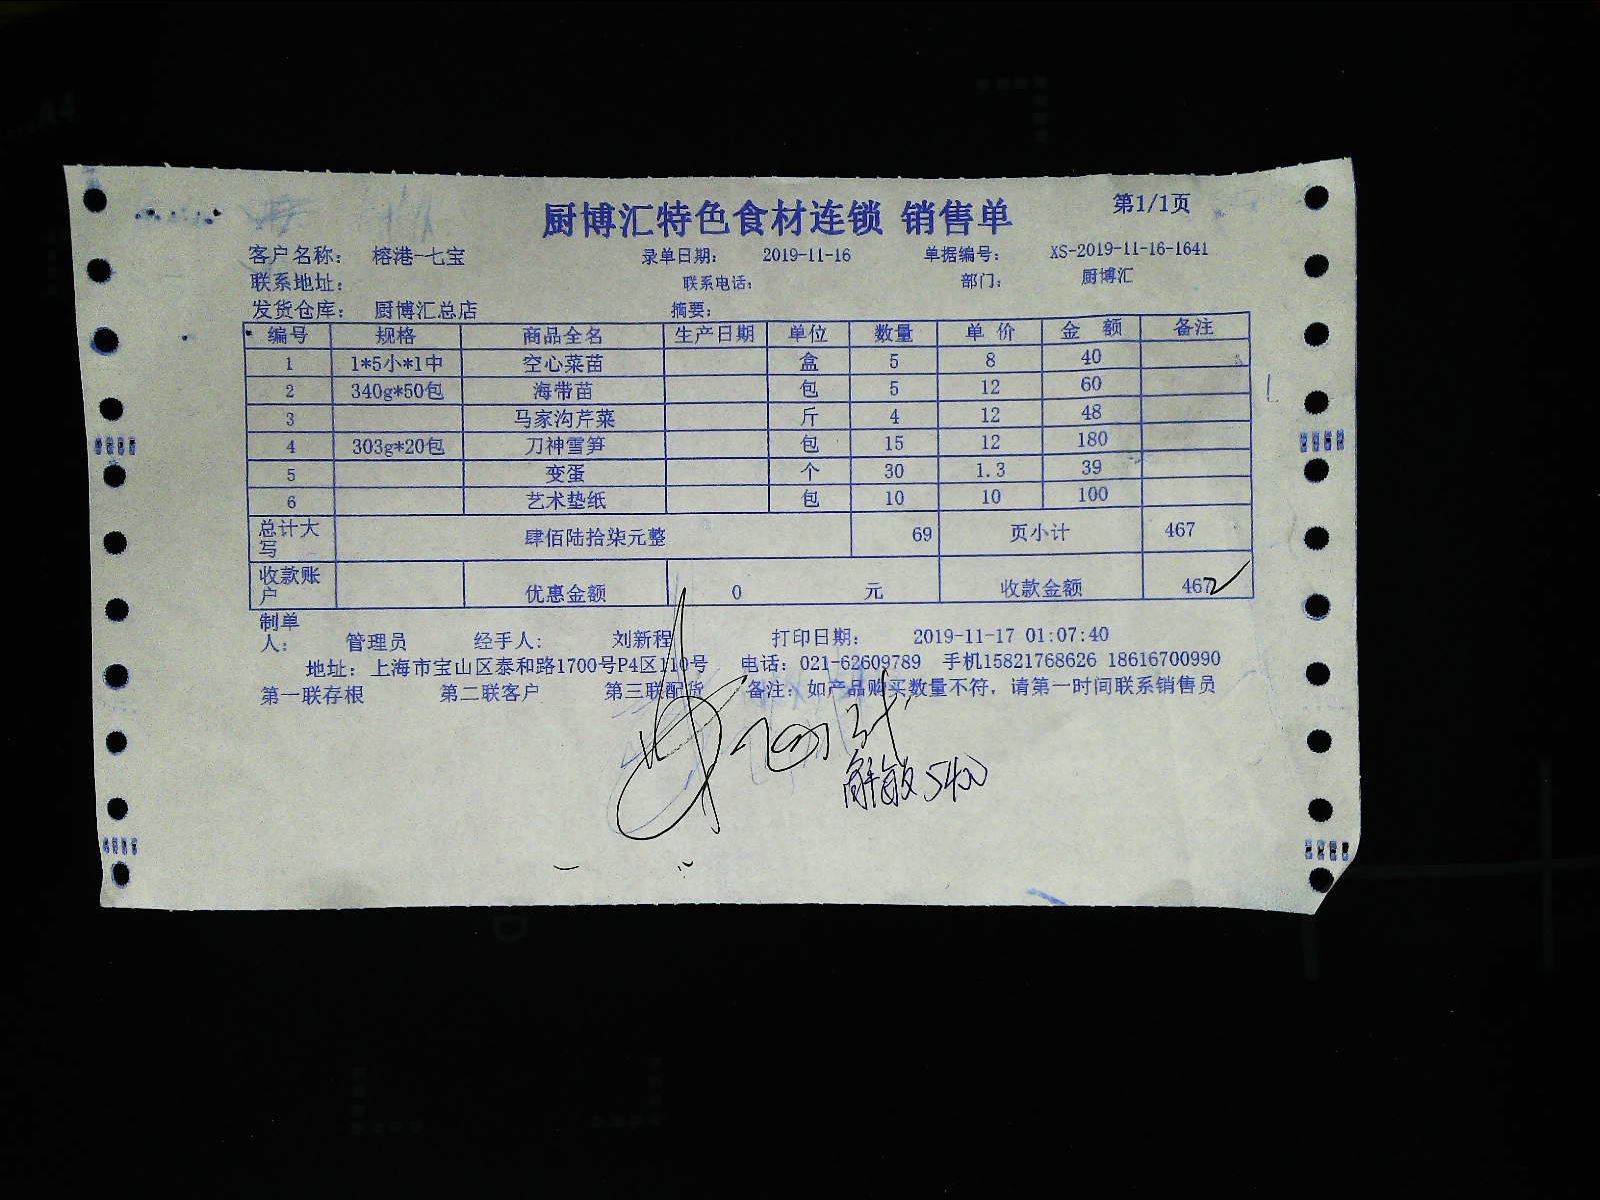 厨博汇特色食材连锁 销售单 第1/1页
客户名称： 榕港-七宝 录单日期： 2019-11-16 单据编号： XS-2019-11-16-1641
联系地址： 联系电话： 部门： 厨博汇
发货仓库： 厨博汇总店 摘要：
编号 规格 商品全名 生产日期 单位 数量 单 价 金 额 备注
1 1*5小*1中 空心菜苗 盒 5 8 40
2 340g*50包 海带苗 包 5 12 60
3 马家沟芹菜 斤 4 12 48
4 303g*20包 刀神雪笋 包 15 12 180
5 变蛋 个 30 1.3 39
6 艺术垫纸 包 10 10 100
总计大写 肆佰陆拾柒元整 69 页小计 467
收款账户 优惠金额 0 元 收款金额 467
制单人： 管理员 经手人： 刘新程 打印日期： 2019-11-17 01:07:40
地址：上海市宝山区泰和路1700号P4区110号 电话：021-62609789 手机15821768626 18616700990
第一联存根 第二联客户 第三联配货 备注：如产品购买数量不符，请第一时间联系销售员